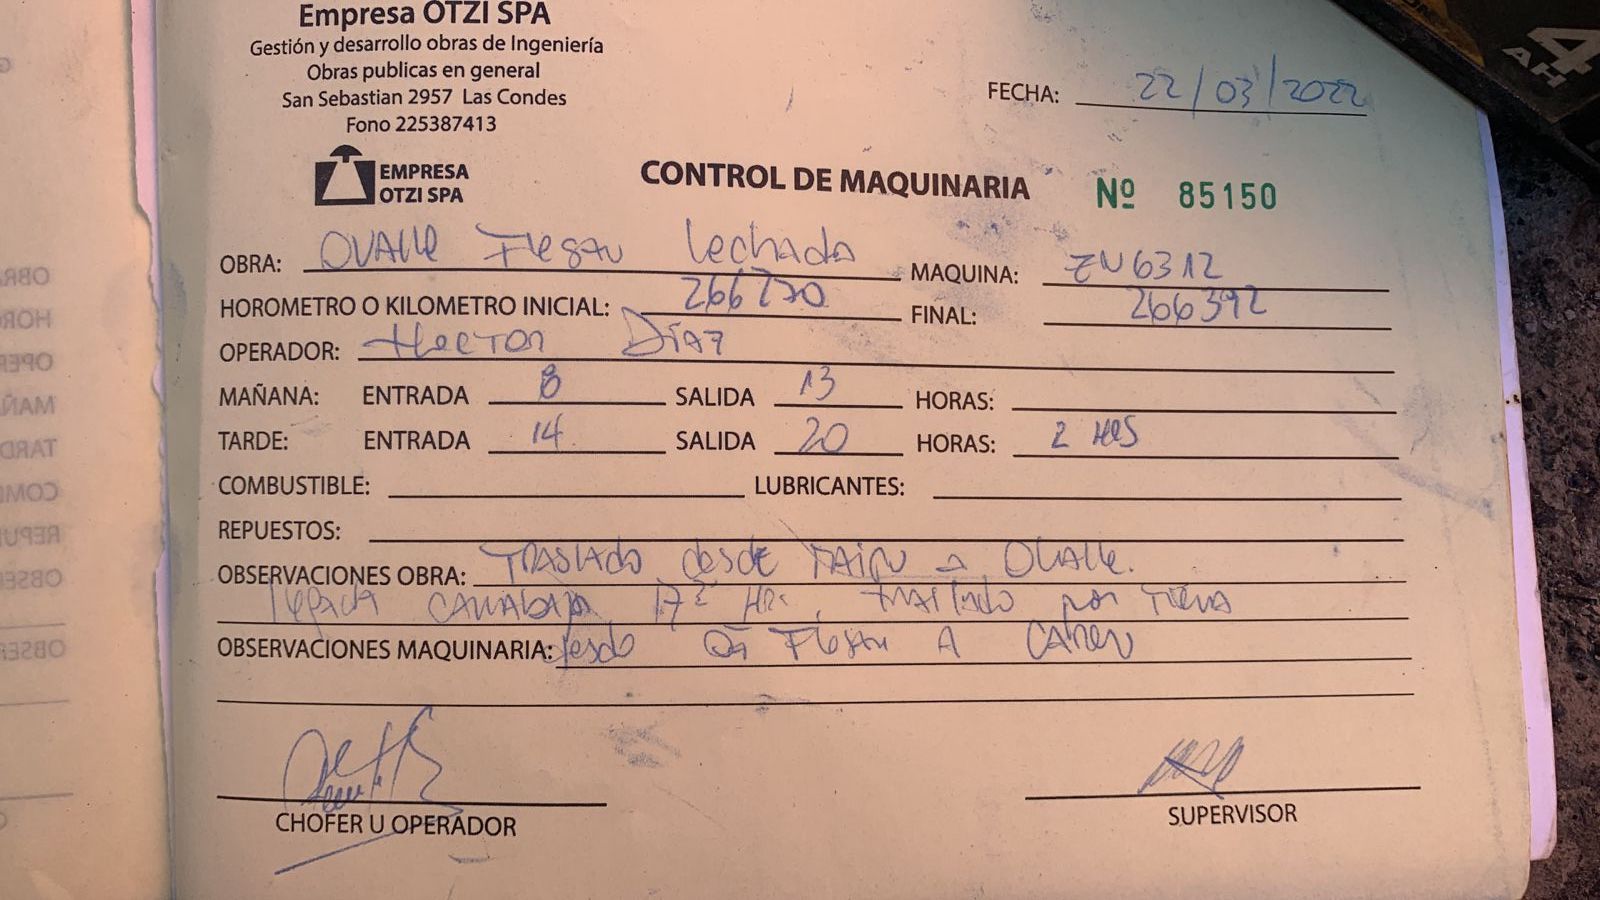 Empresa OTZI SPA
Gestión y desarrollo obras de Ingeniería
Obras publicas en general
San Sebastian 2957 Las Condes
Fono 225387413
FECHA: 22/03/2022
EMPRESA
OTZI SPA
CONTROL DE MAQUINARIA Nº 85150
OBRA: OVALLE Flesan Lechada MAQUINA: ZN6312
HOROMETRO O KILOMETRO INICIAL: FINAL: 266392
OPERADOR: Hector Díaz
MAÑANA: ENTRADA 8 SALIDA 13 HORAS:
TARDE: ENTRADA 14 SALIDA 20 HORAS: 2 HRS
COMBUSTIBLE: LUBRICANTES:
REPUESTOS:
OBSERVACIONES OBRA: TRASLADO desde MAIPU a OVALLE.
Hrs. traslado por
OBSERVACIONES MAQUINARIA: desde Flesan A Caren
CHOFER U OPERADOR
SUPERVISOR
4
AH